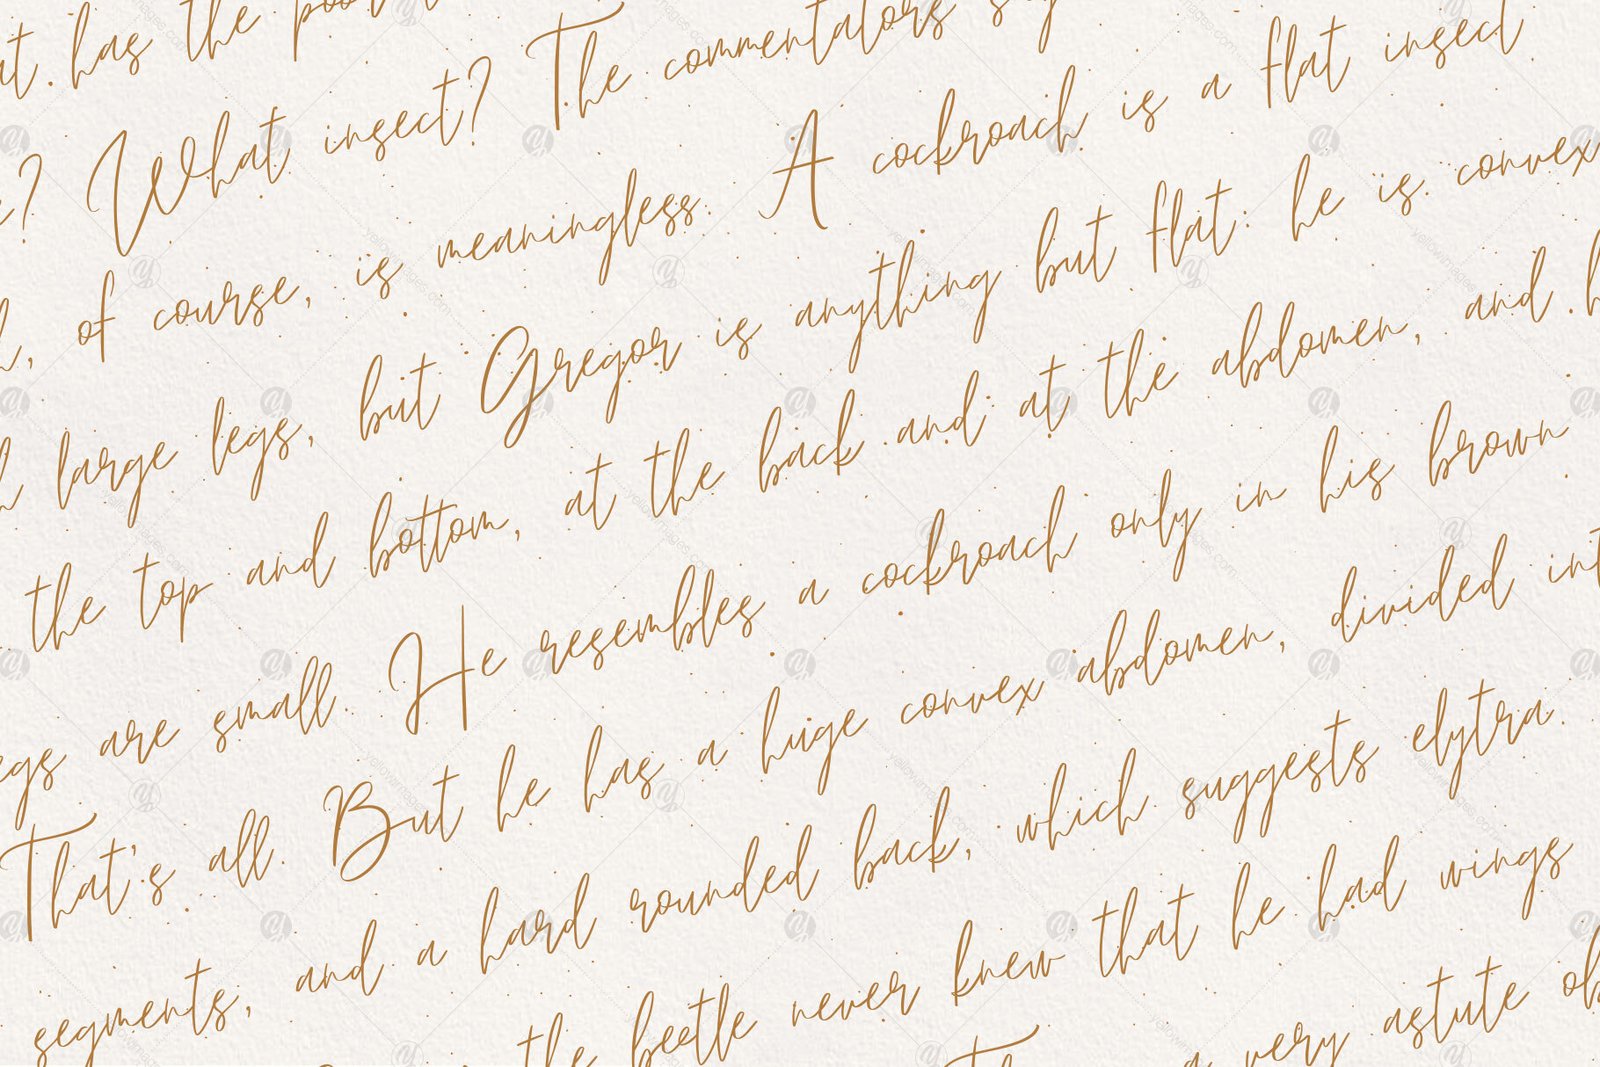 has the
What insect? The commentators
, of course, is meaningless. A cockroach is a flat insect
large legs, but Gregor is anything but flat: he is convex
the top and bottom, at the back and at the abdomen, and
egs are small. He resembles a cockroach only in his brown
That's all. But he has a huge convex abdomen, divided int
segments, and a hard rounded back, which suggests elytra.
the beetle never knew that he had wings
a very astute ob